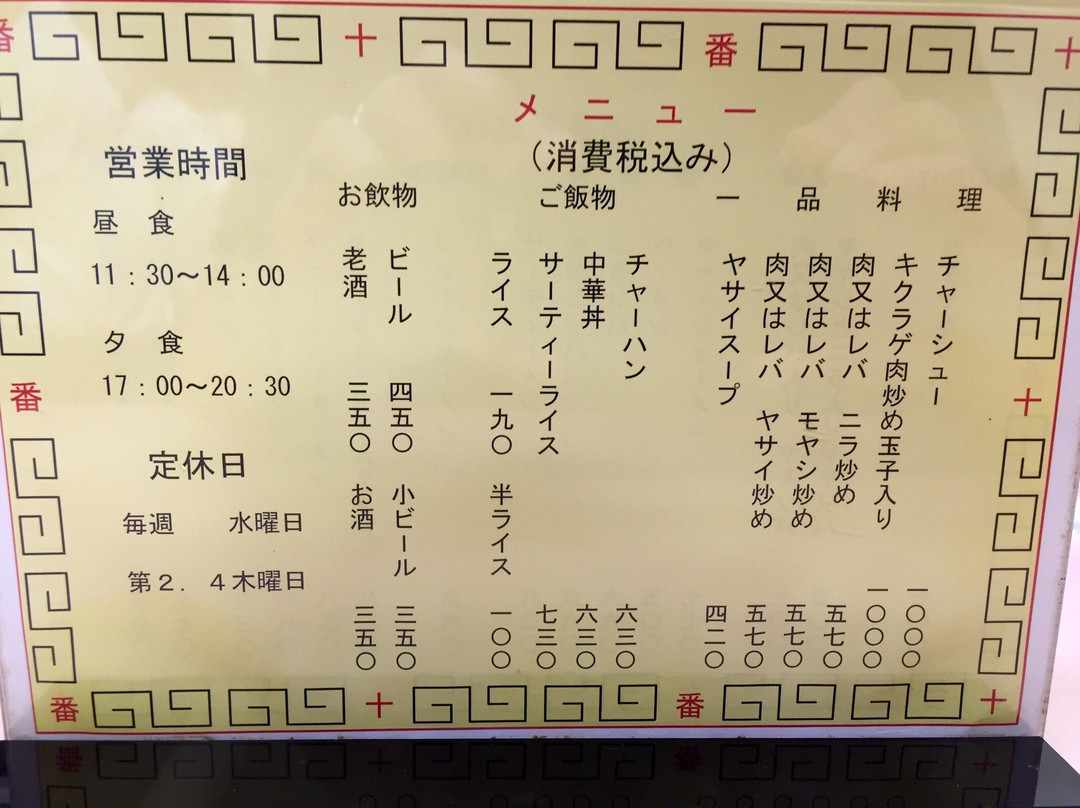 十 番 十
番
メニュー
(消費税込み)
一品料理
チャーシュー 一〇〇〇
キクラゲ肉炒め玉子入り 一〇〇〇
肉又はレバ ニラ炒め 五七〇
肉又はレバ モヤシ炒め 五七〇
肉又はレバ ヤサイ炒め 五七〇
ヤサイスープ 四二〇
ご飯物
チャーハン 六三〇
中華丼 六三〇
サーティーライス 七三〇
ライス 一九〇 半ライス 一〇〇
お飲物
ビール 四五〇 小ビール 三五〇
老酒 三五〇 お酒 三五〇
営業時間
昼食
11:30～14:00
夕食
17:00～20:30
定休日
毎週 水曜日
第2.4木曜日
番
十
番 十 番 十